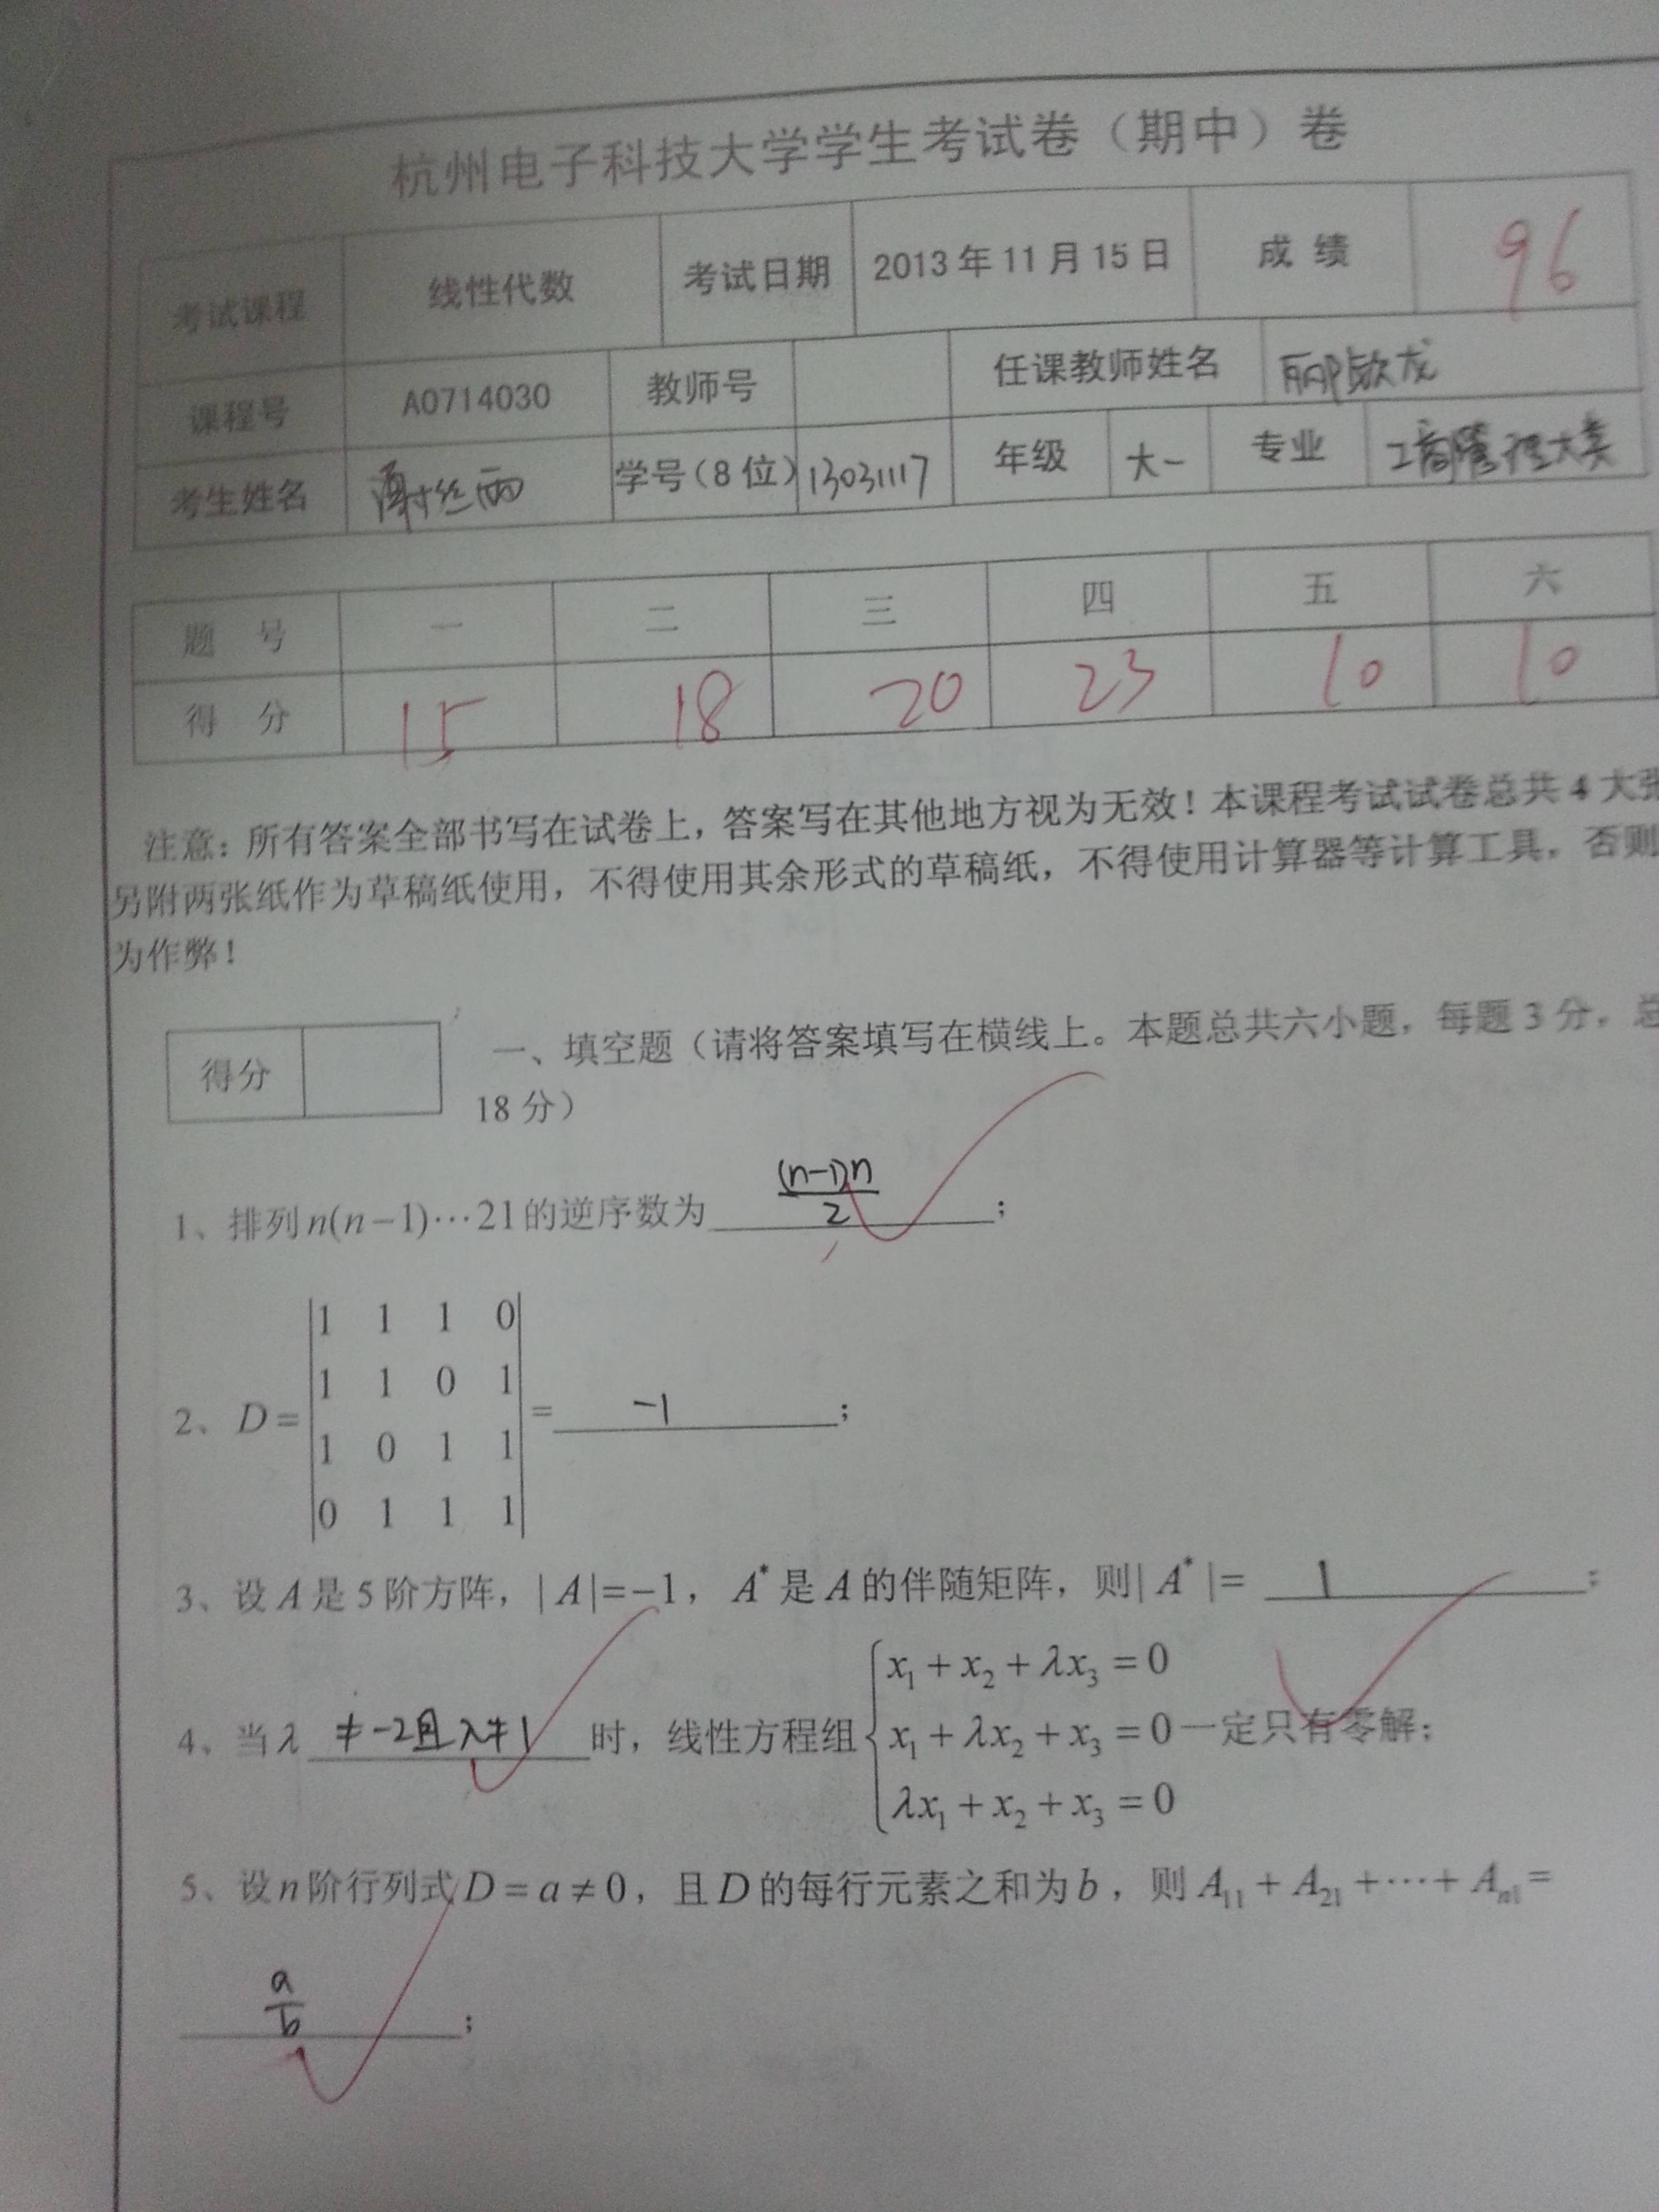 杭州电子科技大学学生考试卷（期中）卷
考试课程 线性代数 考试日期 2013年11月15日 成绩 96
课程号 A0714030 教师号 任课教师姓名 邴欽龙
考生姓名 谢丝雨 学号(8位) 13031117 年级 大一 专业 工商管理大类
题 号 一 二 三 四 五 六
得 分 15 18 20 23 10 10
注意：所有答案全部书写在试卷上，答案写在其他地方视为无效！本课程考试试卷总共4大张
另附两张纸作为草稿纸使用，不得使用其余形式的草稿纸，不得使用计算器等计算工具，否则
为作弊！
得分 一、填空题（请将答案填写在横线上。本题总共六小题，每题3分，总
18分）
1、排列n(n−1)⋯21的逆序数为 (n-1)n/2 ；
1 1 1 0
1 1 0 1
2、D= = -1 ；
1 0 1 1
0 1 1 1
3、设A是5阶方阵，|A|=−1，A*是A的伴随矩阵，则|A*|= 1 ；
x₁+x₂+λx₃=0
4、当λ ≠-2且λ≠1 时，线性方程组 x₁+λx₂+x₃=0 一定只有零解；
λx₁+x₂+x₃=0
5、设n阶行列式D=a≠0，且D的每行元素之和为b，则A₁₁+A₂₁+⋯+Aₙ₁=
a/b ；